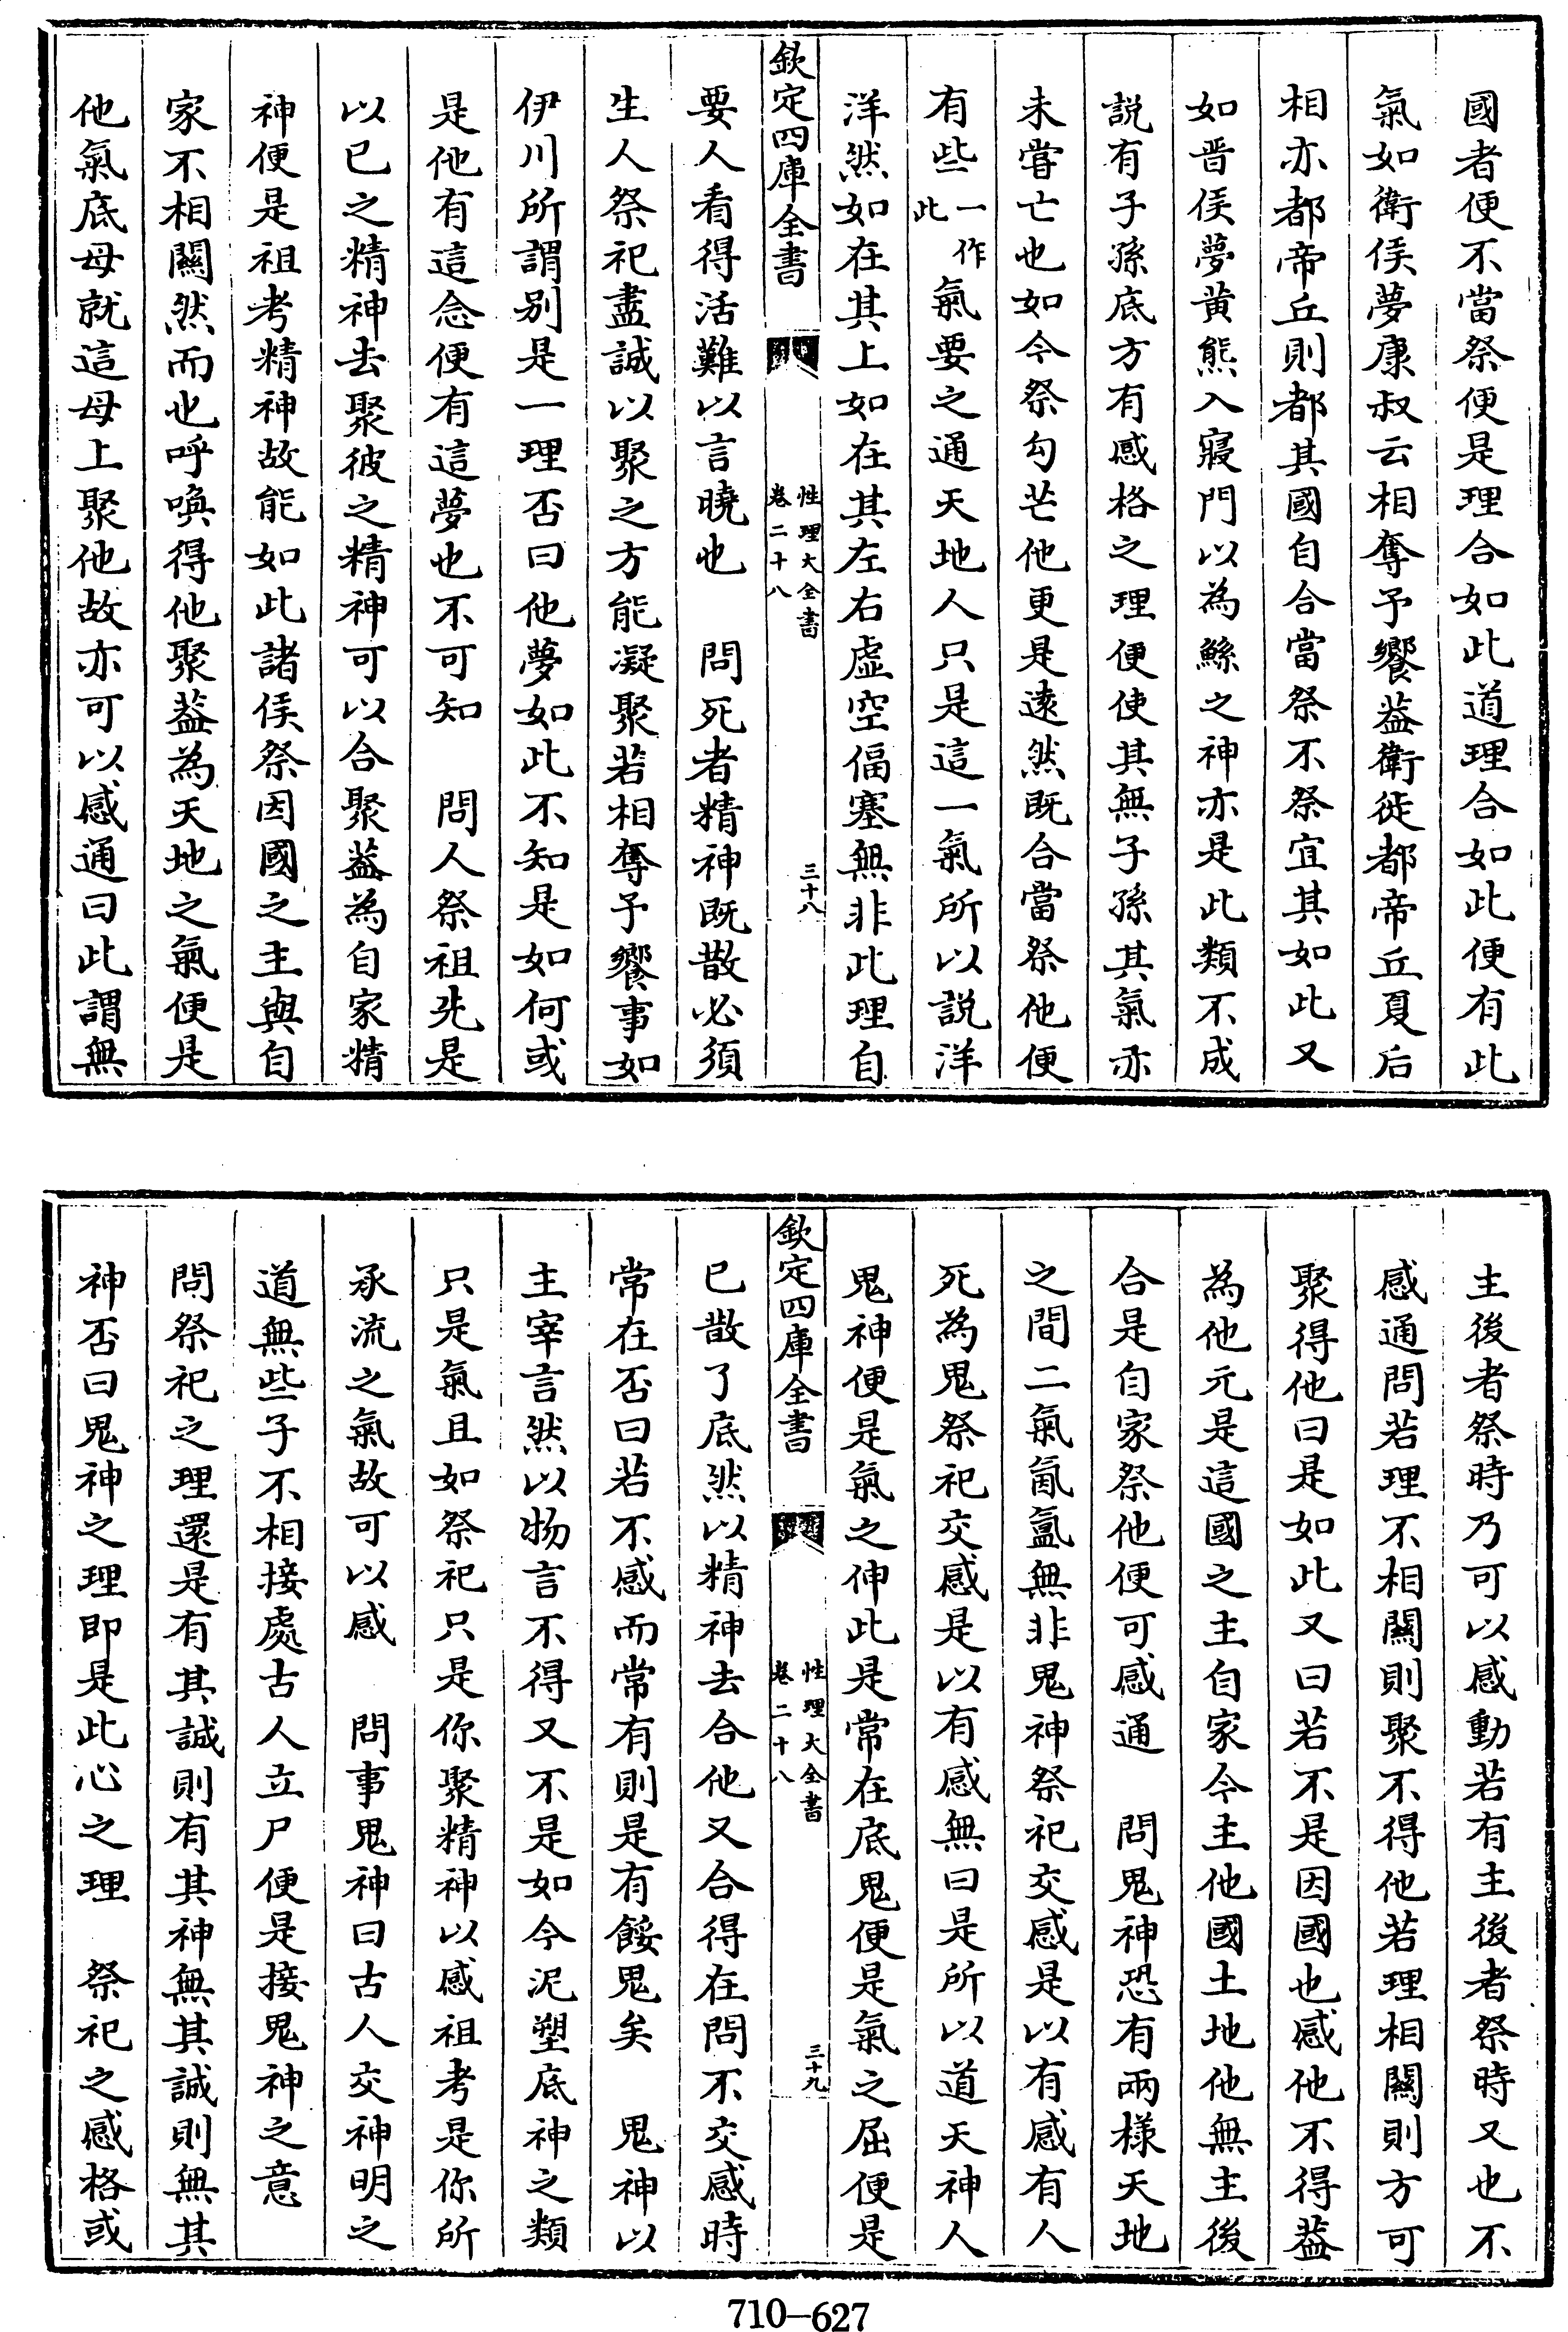 國者便不當祭便是理合如此道理合如此便有此
氣如衛侯夢康叔云相奪予饗蓋衛徙都帝丘夏后
相亦都帝丘則都其國自合當祭不祭宜其如此又
如晋侯夢黄熊入寢門以為鯀之神亦是此類不成
説有子孫底方有感格之理便使其無子孫其氣亦
未嘗亡也如今祭勾芒他更是逺然既合當祭他便
有些一作此氣要之通天地人只是這一氣所以説洋
洋然如在其上如在其左右虛空偪塞無非此理自
欽定四庫全書
性理大全書
卷二十八
三十八
要人看得活難以言曉也　問死者精神既散必須
生人祭祀盡誠以聚之方能凝聚若相奪予饗事如
伊川所謂别是一理否曰他夢如此不知是如何或
是他有這念便有這夢也不可知　問人祭祖先是
以已之精神去聚彼之精神可以合聚蓋為自家精
神便是祖考精神故能如此諸侯祭因國之主與自
家不相關然而也呼喚得他聚蓋為天地之氣便是
他氣底母就這母上聚他故亦可以感通曰此謂無
主後者祭時乃可以感動若有主後者祭時又也不
感通問若理不相關則聚不得他若理相關則方可
聚得他曰是如此又曰若不是因國也感他不得蓋
為他元是這國之主自家今主他國土地他無主後
合是自家祭他便可感通　問鬼神恐有兩様天地
之間二氣氤氲無非鬼神祭祀交感是以有感有人
死為鬼祭祀交感是以有感無曰是所以道天神人
鬼神便是氣之伸此是常在底鬼便是氣之屈便是
欽定四庫全書
性理大全書
卷二十八
三十九
已散了底然以精神去合他又合得在問不交感時
常在否曰若不感而常有則是有餒鬼矣　鬼神以
主宰言然以物言不得又不是如今泥塑底神之類
只是氣且如祭祀只是你聚精神以感祖考是你所
承流之氣故可以感　問事鬼神曰古人交神明之
道無些子不相接處古人立尸便是接鬼神之意
問祭祀之理還是有其誠則有其神無其誠則無其
神否曰鬼神之理即是此心之理　祭祀之感格或
710-627